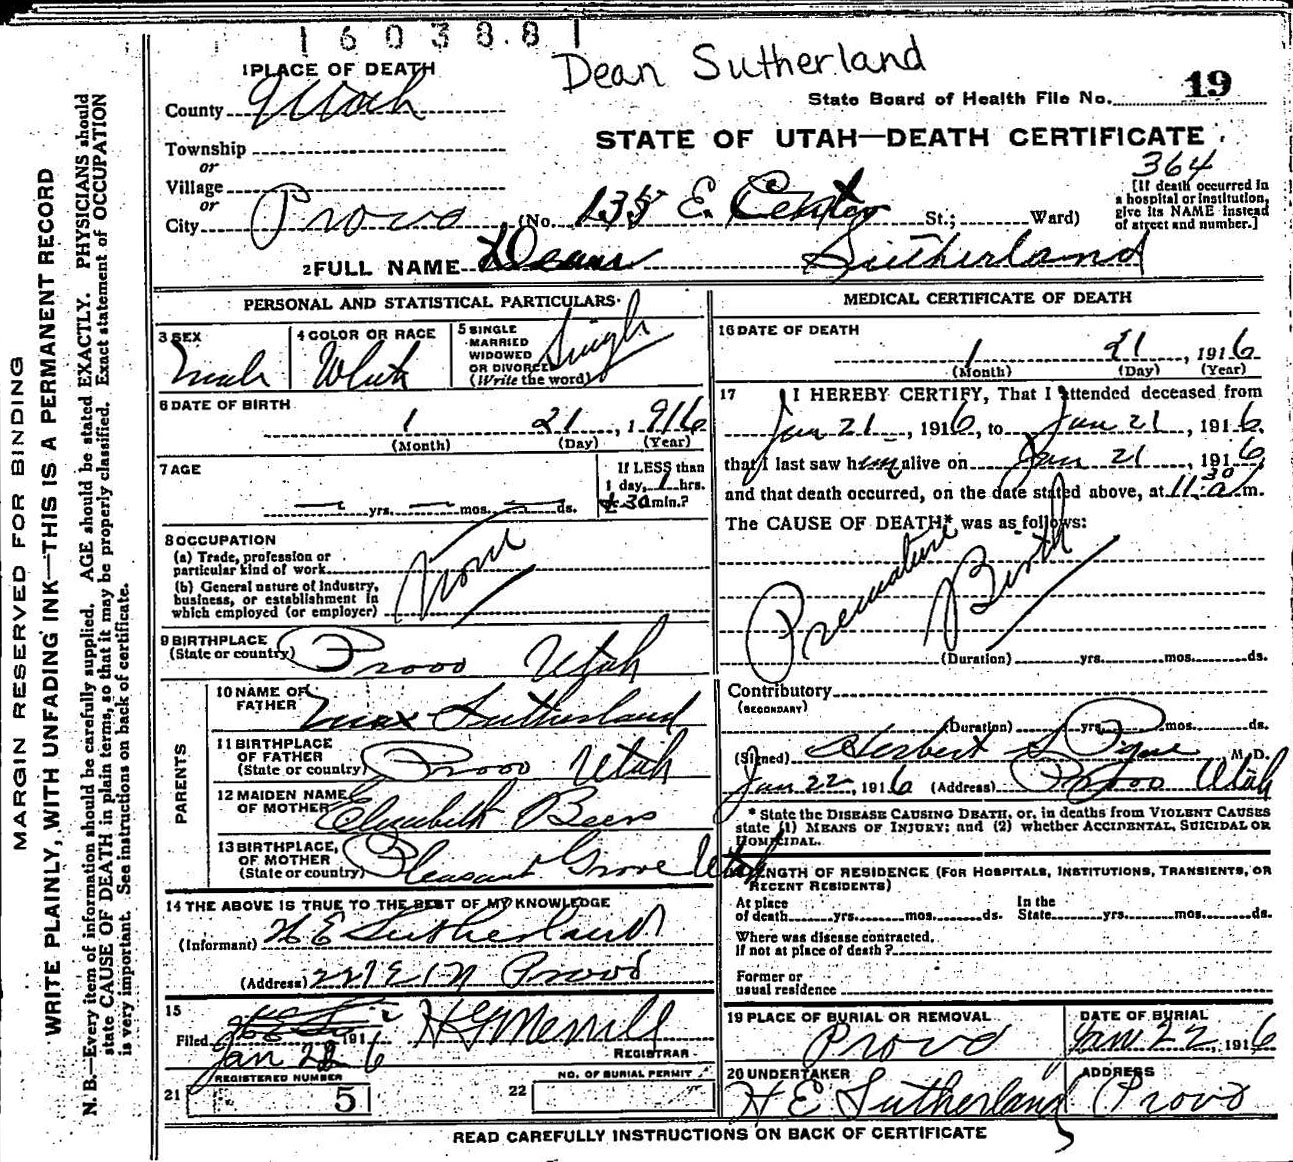 1603881
Dean Sutherland
1 PLACE OF DEATH
County Utah
State Board of Health File No. 19
Township
or
Village
or
City Provo
STATE OF UTAH—DEATH CERTIFICATE
364
[If death occurred in
a hospital or institution,
give its NAME instead
of street and number.]
(No. 135 E. Center St.; Ward)
2 FULL NAME Dean Sutherland
PERSONAL AND STATISTICAL PARTICULARS
3 SEX
Male
4 COLOR OR RACE
White
5 SINGLE
MARRIED
WIDOWED
OR DIVORCED
(Write the word)
Single
6 DATE OF BIRTH
1 21, 1916
(Month) (Day) (Year)
7 AGE
— yrs. — mos. — ds.
If LESS than
1 day, 1 hrs.
30 min.?
8 OCCUPATION
(a) Trade, profession or
particular kind of work
(b) General nature of industry,
business, or establishment in
which employed (or employer)
None
9 BIRTHPLACE
(State or country)
Provo Utah
PARENTS
10 NAME OF
FATHER
Max Sutherland
11 BIRTHPLACE
OF FATHER
(State or country)
Provo Utah
12 MAIDEN NAME
OF MOTHER
Elizabeth Beers
13 BIRTHPLACE,
OF MOTHER
(State or country)
Pleasant Grove Utah
14 THE ABOVE IS TRUE TO THE BEST OF MY KNOWLEDGE
(Informant) H E Sutherland
(Address) 227 E 1 N Provo
15
Filed Jan 22 1916 H G Merrill
REGISTRAR
21 REGISTERED NUMBER
5
22 NO. OF BURIAL PERMIT
MEDICAL CERTIFICATE OF DEATH
16 DATE OF DEATH
1 21, 1916
(Month) (Day) (Year)
17 I HEREBY CERTIFY, That I attended deceased from
Jan 21, 1916, to Jan 21, 1916,
that I last saw him alive on Jan 21, 1916,
and that death occurred, on the date stated above, at 11:30 a.m.
The CAUSE OF DEATH* was as follows:
Premature Birth
(Duration) yrs. mos. ds.
Contributory
(SECONDARY)
(Duration) yrs. mos. ds.
(Signed) Herbert S Pyne M.D.
Jan 22, 1916 (Address) Provo Utah
* State the DISEASE CAUSING DEATH, or, in deaths from VIOLENT CAUSES
state (1) MEANS OF INJURY; and (2) whether ACCIDENTAL, SUICIDAL OR
HOMICIDAL.
LENGTH OF RESIDENCE (FOR HOSPITALS, INSTITUTIONS, TRANSIENTS, OR
RECENT RESIDENTS)
At place
of death yrs. mos. ds.
In the
State yrs. mos. ds.
Where was disease contracted,
if not at place of death?
Former or
usual residence
19 PLACE OF BURIAL OR REMOVAL
Provo
DATE OF BURIAL
Jan 22, 1916
20 UNDERTAKER
H E Sutherland
ADDRESS
Provo
READ CAREFULLY INSTRUCTIONS ON BACK OF CERTIFICATE
MARGIN RESERVED FOR BINDING
WRITE PLAINLY, WITH UNFADING INK—THIS IS A PERMANENT RECORD
N. B.—Every item of information should be carefully supplied. AGE should be stated EXACTLY. PHYSICIANS should
state CAUSE OF DEATH in plain terms, so that it may be properly classified. Exact statement of OCCUPATION
is very important. See instructions on back of certificate.